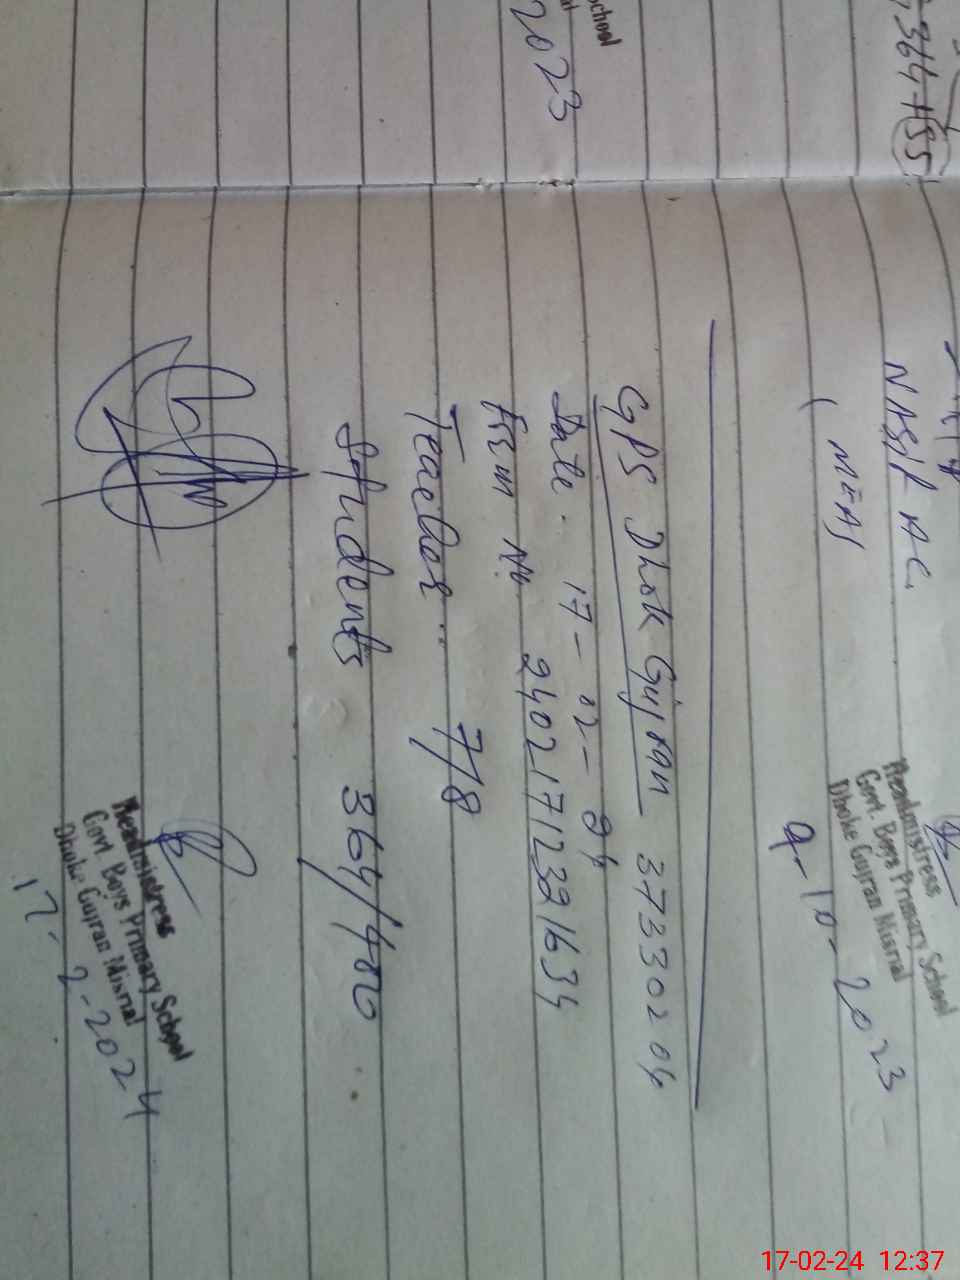 School
2023
364-155
NASIR AC.
(MEA)
Headmistress
Govt. Boys Primary School
Dhoke Gujran Misrial
9-10-2023
GPS Dhok Gujran 37330204
Date. 17-02-24
Frem No. 2402171232 1634
Teacher.. 7/8
Students 364/400
Headmistress
Govt. Boys Primary School
Dhoke Gujran Misrial
17-2-2024
17-02-24 12:37